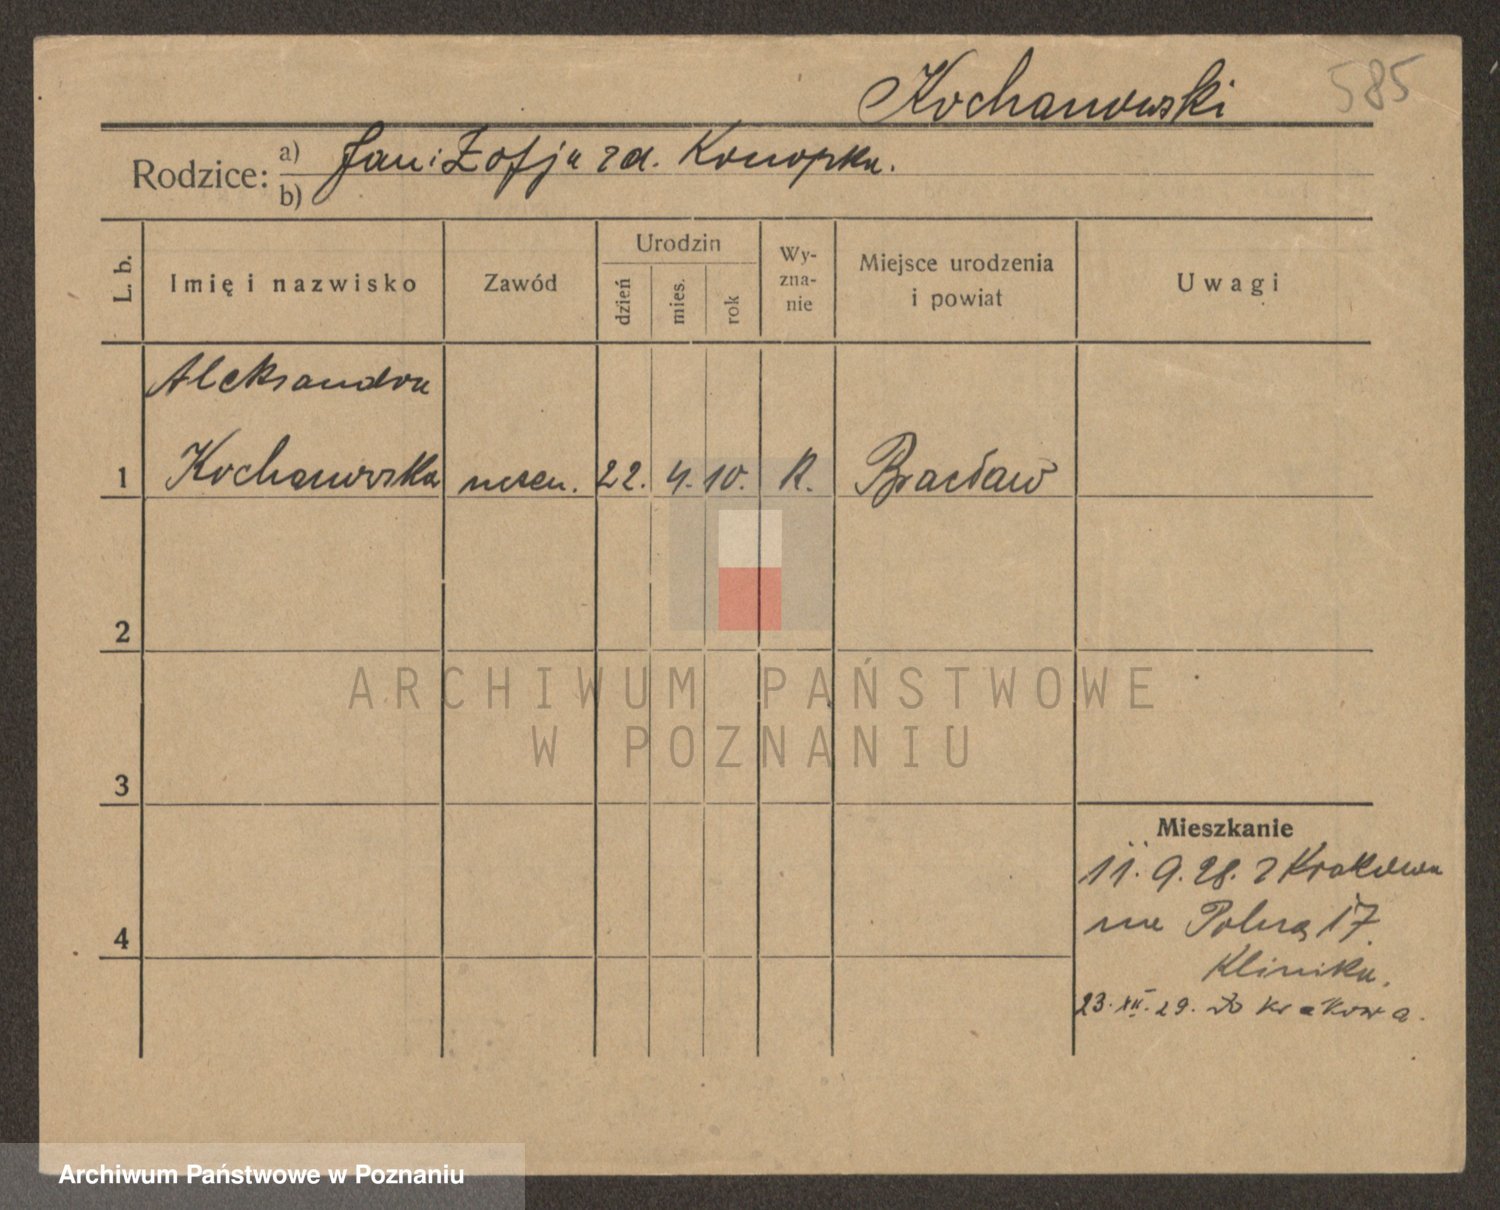 Kochanowski 585
Rodzice: a) Jan i Zofja zd. Konopka.
b)
L. b.
Imię i nazwisko
Zawód
Urodzin
dzień
mies.
rok
Wy-
zna-
nie
Miejsce urodzenia
i powiat
Uwagi
Aleksandra
1 Kochanowska uczen. 22. 4. 10. R. Bracław
2
3
4
Mieszkanie
11. 9. 28. z Krakowa
na Polną 17.
Klinika.
23. XII. 29. do Krakowa.
ARCHIWUM PAŃSTWOWE
W POZNANIU
Archiwum Państwowe w Poznaniu